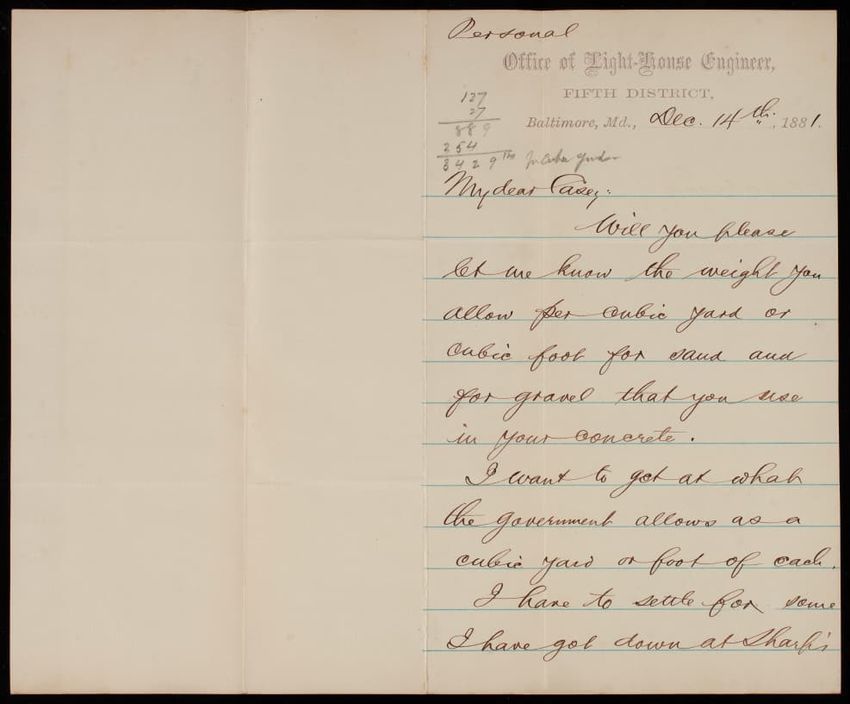 Personal
Office of Light-House Engineer,
FIFTH DISTRICT,
Baltimore, Md., Dec. 14th, 1881.
127
27
889
254
3429
My dear Casey:
Will you please
let me know the weight you
allow per cubic yard or
cubic foot for sand and
for gravel that you use
in your concrete.
I want to get at what
the government allows as a
cubic yard or foot of each.
I have to settle for some
I have got down at Sharp's